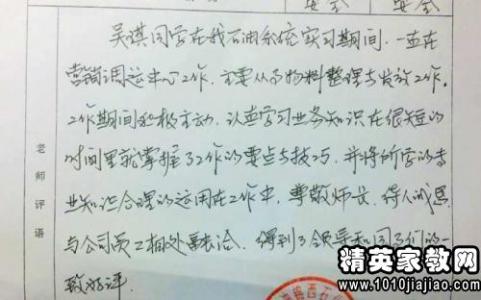 吴淇同学在我石油系统实习期间,一直在
营销调运中心工作,主要从事物料整理与发放工作。
工作期间积极主动,认真学习业务知识在很短的
时间里就掌握了工作的要点与技巧,并将所学的专
业知识合理的运用在工作中,尊敬师长,待人诚恳
与公司员工相处融洽,得到了领导和同事们的一
致好评.
老师评语
精英家教网
www.1010jiajiao.com